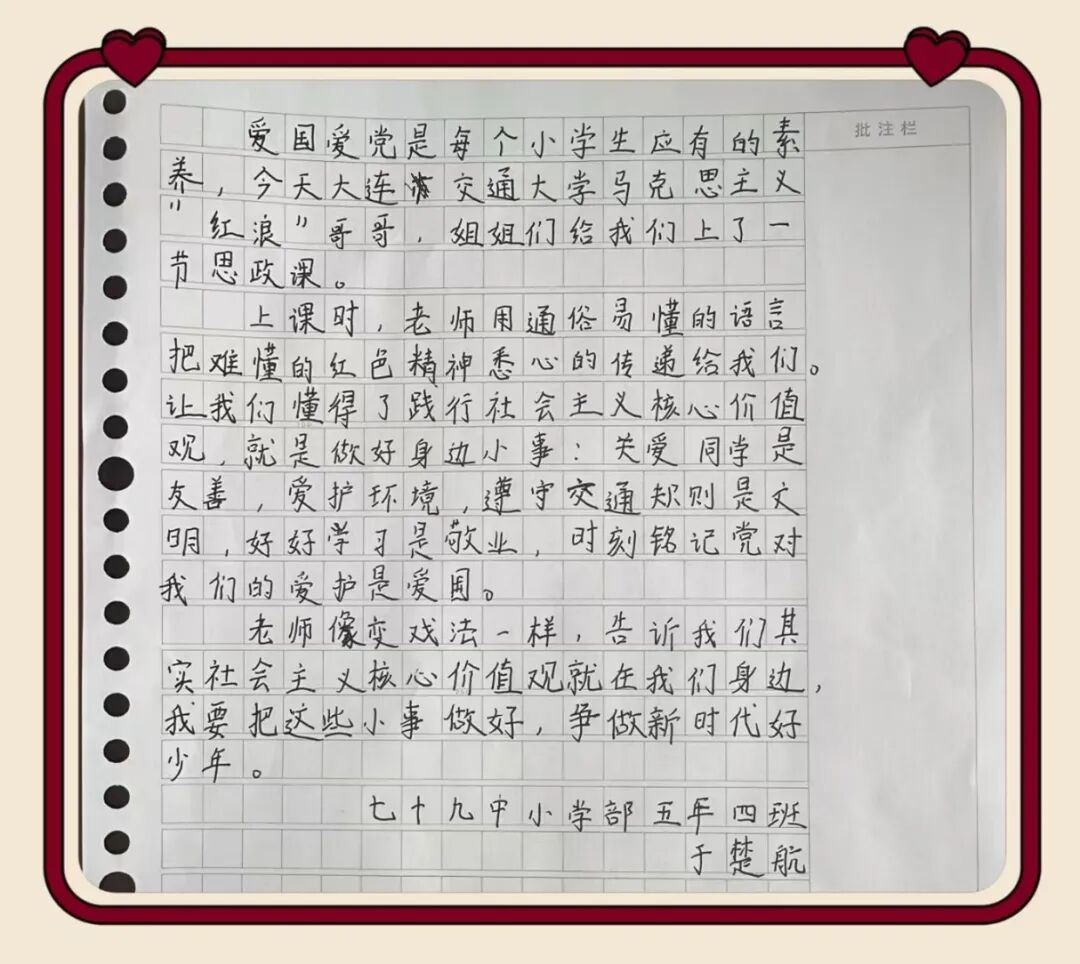 批注栏
爱国爱党是每个小学生应有的素
养，今天大连交通大学马克思主义
"红浪"哥哥，姐姐们给我们上了一
节思政课。
上课时，老师用通俗易懂的语言
把难懂的红色精神悉心的传递给我们。
让我们懂得了践行社会主义核心价值
观，就是做好身边小事：关爱同学是
友善，爱护环境，遵守交通规则是文
明，好好学习是敬业，时刻铭记党对
我们的爱护是爱国。
老师像变戏法一样，告诉我们其
实社会主义核心价值观就在我们身边，
我要把这些小事做好，争做新时代好
少年。
七十九中小学部五年四班
于楚航